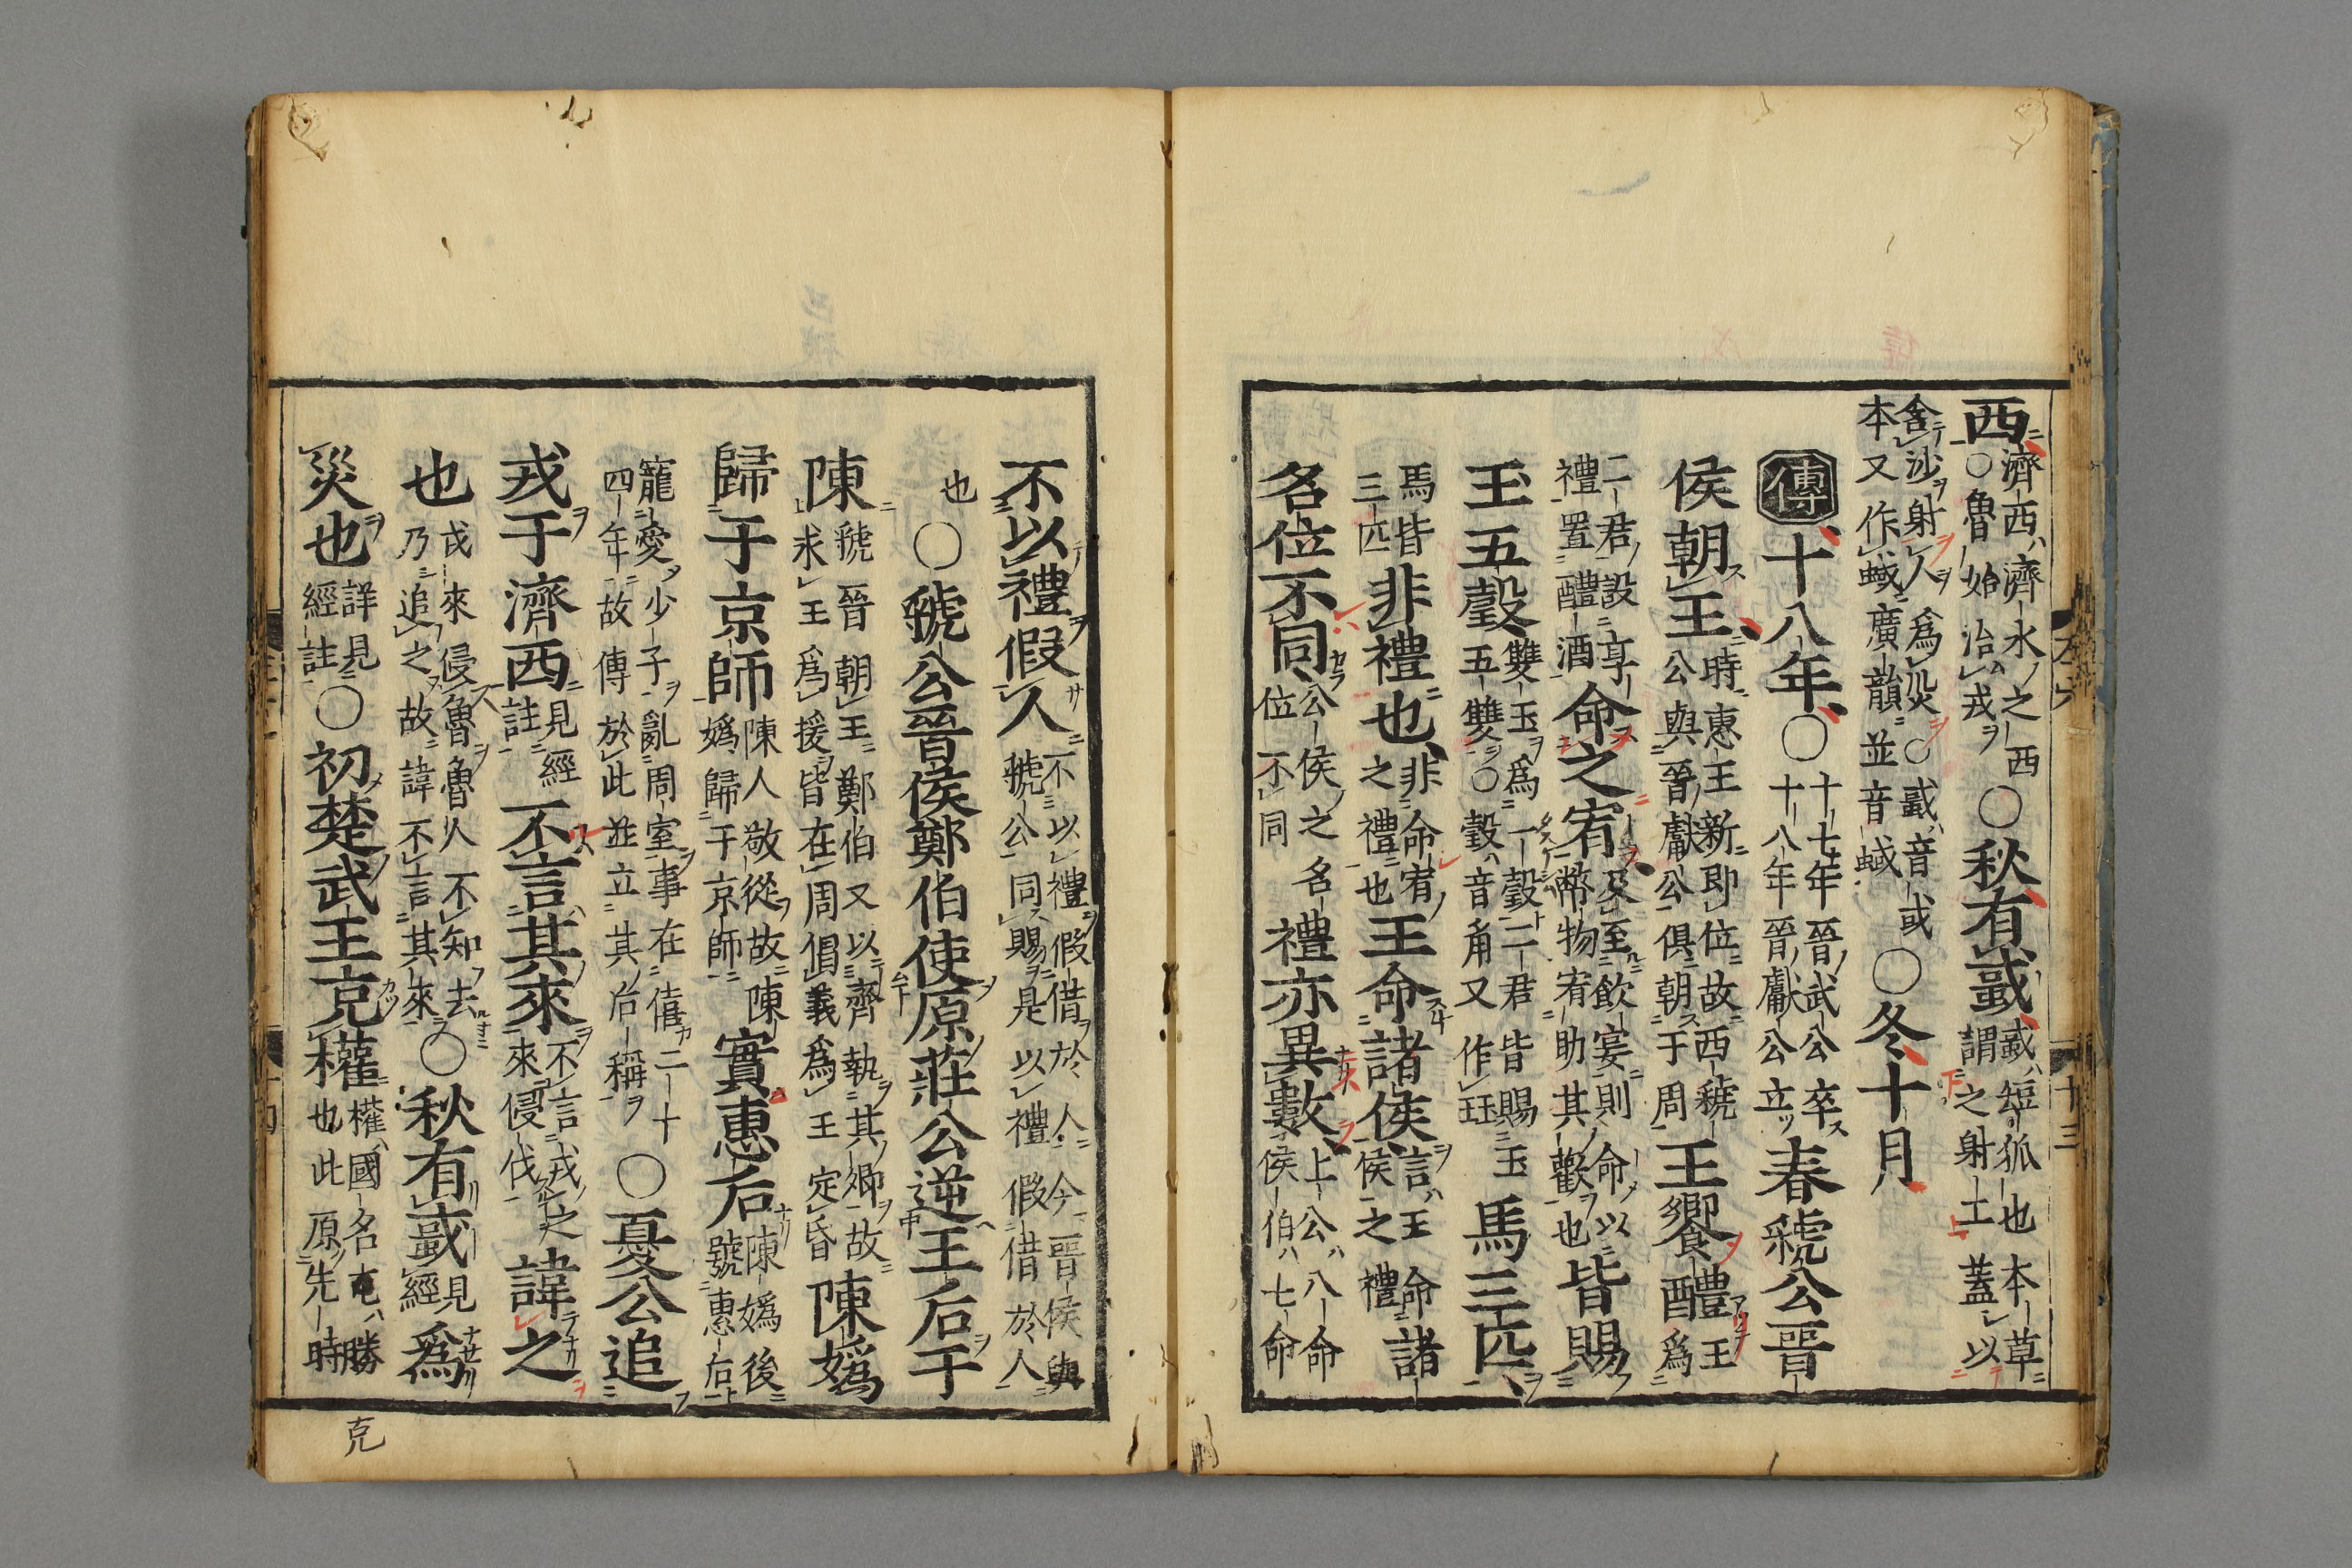 西濟西濟水之西○魯始治戎○秋有蜮蜮短狐也本草謂之射土蓋以
含沙射人爲災○蜮音或本又作蜮廣韻並音蜮○冬十月
傳十八年○十七年晉武公卒十八年晉獻公立春虢公晉
侯朝王時惠王新即位故西虢公與晉獻公俱朝于周王饗醴王爲
二君設享禮置醴酒命之宥及至飲宴則命以幣物宥助其歡也皆賜
玉五瑴雙玉爲一瑴二君皆賜玉五雙○瑴音角又作玨馬三匹
馬皆三匹非禮也非命宥之禮也王命諸侯言王命諸侯之禮諸
名位不同公侯之名位不同禮亦異數上公八命侯伯七命
不以禮假人不以禮假借於人今晉侯與虢公同賜是以禮假借於人
也○虢公晉侯鄭伯使原莊公逆王后于
陳虢晉朝王鄭伯又以齊執其卿故求王爲援皆在周倡義爲王定昏陳媯
歸于京師陳人敬從故陳媯歸于京師實惠后陳媯後號惠后
寵愛少子亂周室事在僖二十四年故傳於此並立其后稱○夏公追
戎于濟西見經註不言其來不言戎之來侵伐諱之
也戎來侵魯魯人不知去乃追之故諱不言其來○秋有蜮見經爲
災也詳見經註○初楚武王克權權國名克勝也此原先時
克
十三